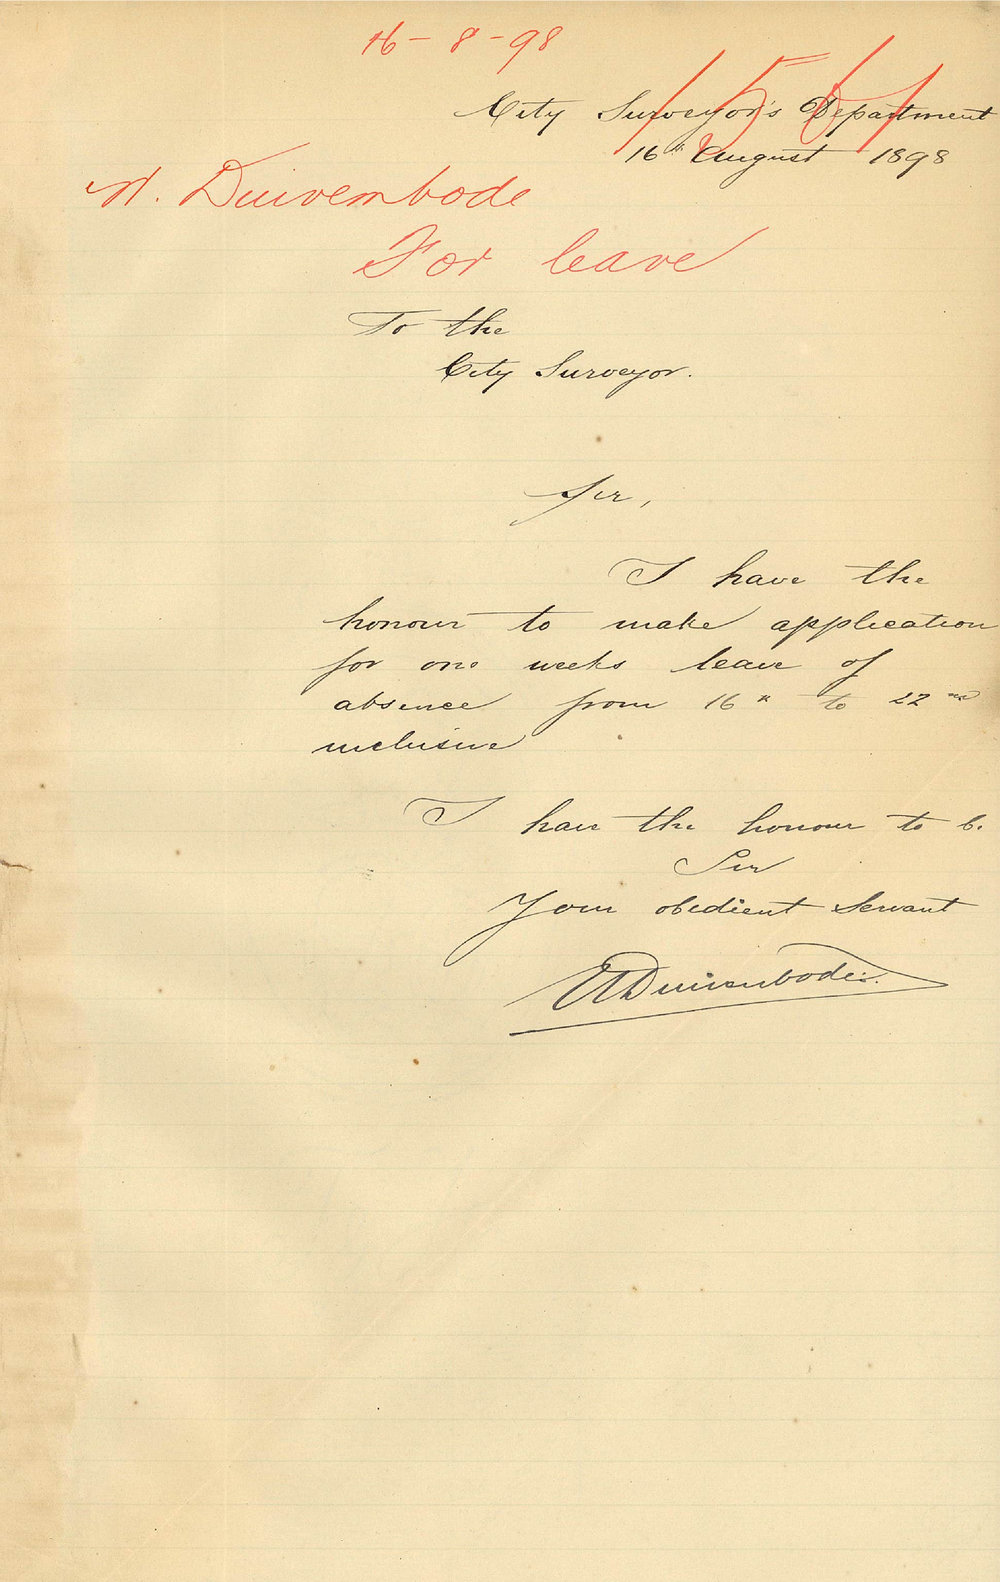 16 - 8 - 98
1561
City Surveyor's Department
16th August 1898
Duivembode
For leave
To the
City Surveyor.
Sir,
I have the
honour to make application
for one weeks leave of
absence from 16th to 22nd
inclusive
I have the honour to be
Sir
Your obedient Servant
Duivenbode